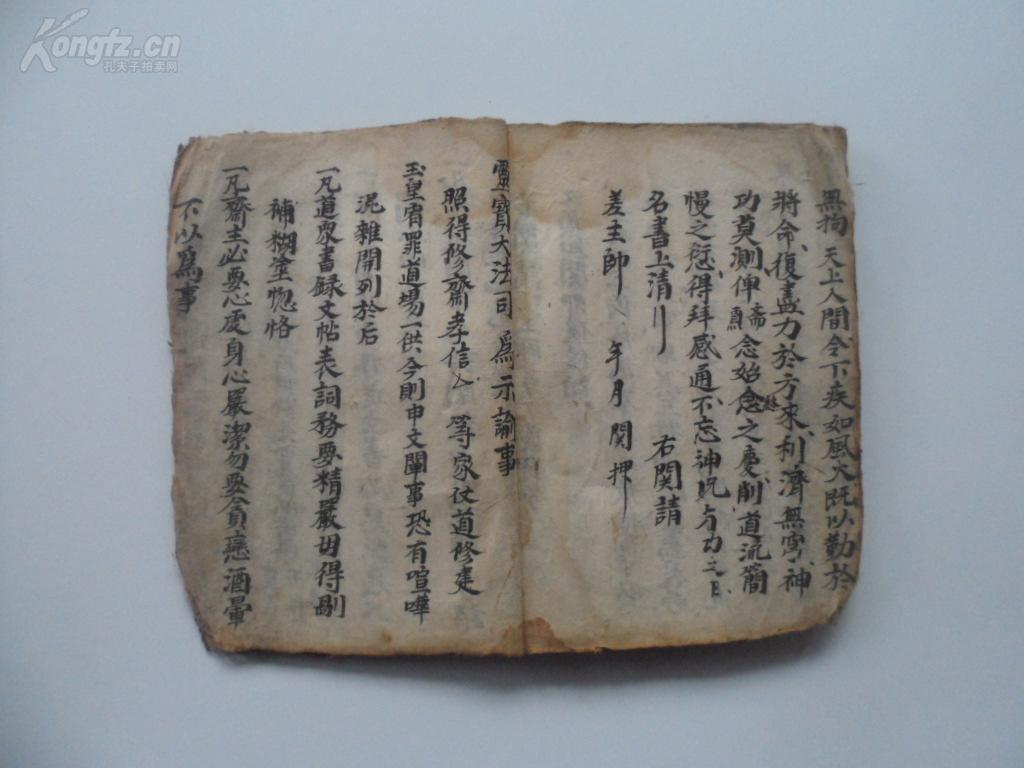 無拘天上人間令下疾如風火既以勤於
將命復盡力於方來利濟無窮神
功莫測俾齋念始念終之慶削道流簡
慢之愆得拜感通不忘神貺
名書上清 右關請
差主帥 年月 關押
靈寶大法司為示諭事
照得修齋孝信 等家仗道修建
玉皇宥罪道場一供今則申文闡事恐有喧嘩
混雜開列於后
一凡道衆書録文帖表詞務要精嚴毋得剮
補糊塗惚恪
一凡齋主必要心虔身心嚴潔勿要貪戀酒暈
下以爲事
Kongfz.cn
孔夫子拍卖网